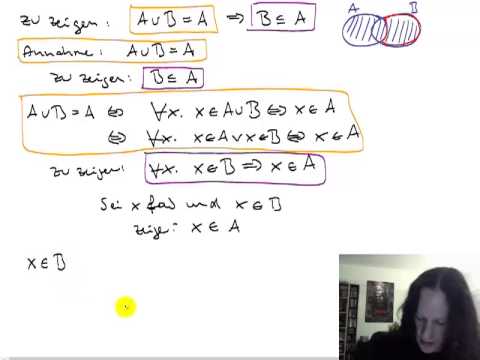 zu zeigen: A∪B = A ⟹ B ⊆ A
A B
Annahme: A∪B = A
zu zeigen: B ⊆ A
A∪B = A ⟺ ∀x. x∈A∪B ⟺ x∈A
⟺ ∀x. x∈A ∨ x∈B ⟺ x∈A
zu zeigen: ∀x. x∈B ⟹ x∈A
Sei x fest und x∈B
zeige: x∈A
x∈B